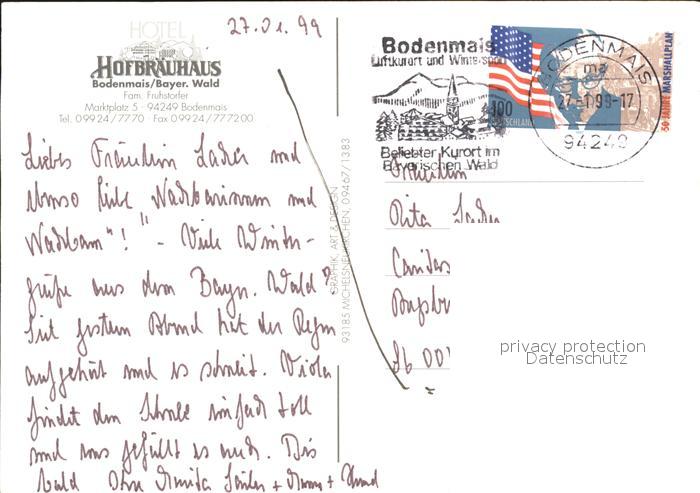 27.01.99
HOTEL
HOFBRÄUHAUS
Bodenmais/Bayer. Wald
Fam. Fruhstorfer
Marktplatz 5 - 94249 Bodenmais
Tel. 09924/7770 · Fax 09924/7777200
Liebes Fräulein und
ebenso liebe Nachbarinnen und
"Nachbarn"! - Viele Winter-
grüße aus dem Bayr. Wald!
Seit gestern Abend hat der Regen
aufgehört und es schneit. Viola
findet den Schnee einfach toll
und uns gefällt es auch. Bis
bald Ihre + + Hund
GRAPHIK, ART & DESIGN
93185 MICHELSNEUKIRCHEN, 09467/1383
Bodenmais
Luftkurort und Wintersport
Beliebter Kurort im
Bayerischen Wald
100
DEUTSCHLAND
50 JAHRE MARSHALLPLAN
BODENMAIS
27.-1.99-17
94249
Fräulein
Rita
Caritas
privacy protection
Datenschutz